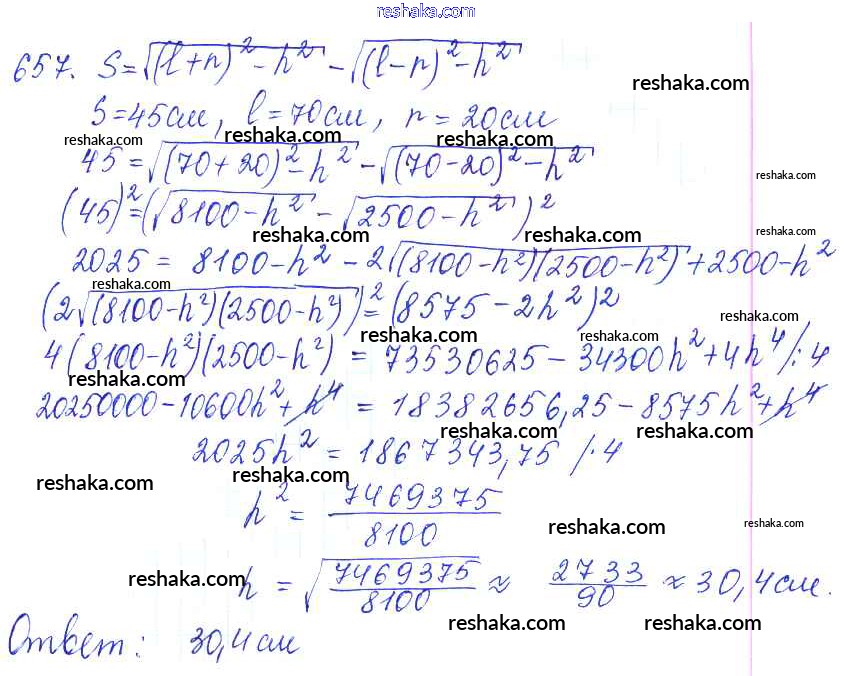 reshaka.com
657. S=√((l+r)²-h²) - √((l-r)²-h²)
reshaka.com
S=45см, l=70см, r=20см
reshaka.com reshaka.com reshaka.com
45=√((70+20)²-h²) - √((70-20)²-h²)
reshaka.com
(45)²=(√(8100-h²) - √(2500-h²))²
reshaka.com reshaka.com reshaka.com
2025 = 8100-h² - 2√((8100-h²)(2500-h²)) + 2500-h²
reshaka.com
(2√((8100-h²)(2500-h²)))² = (8575 - 2h²)²
reshaka.com
reshaka.com reshaka.com
4(8100-h²)(2500-h²) = 73530625 - 34300h² + 4h⁴ /:4
reshaka.com reshaka.com
20250000-10600h²+h⁴ = 18382656,25 - 8575h²+h⁴
reshaka.com reshaka.com
2025h² = 1867343,75 /·4
reshaka.com reshaka.com
h² = 7469375/8100
reshaka.com reshaka.com
h = √(7469375/8100) ≈ 2733/90 ≈ 30,4см.
reshaka.com reshaka.com
reshaka.com reshaka.com
Ответ: 30,4см